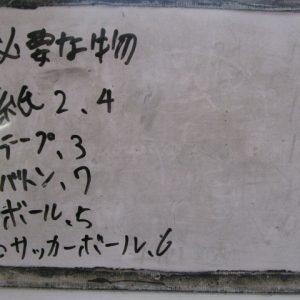 必要な物
紙2、4
テープ、3
バトン、7
ボール、5
サッカーボール、6